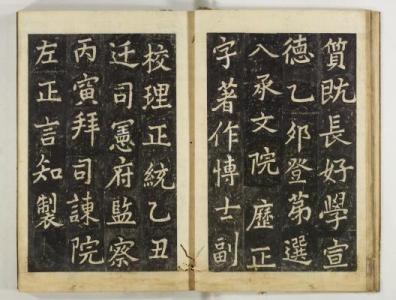 質既長好學宣
德乙夘登第選
入承文院歷正
字著作博士副
校理正統乙丑
迁司憲府監察
丙寅拜司諫院
左正言知製